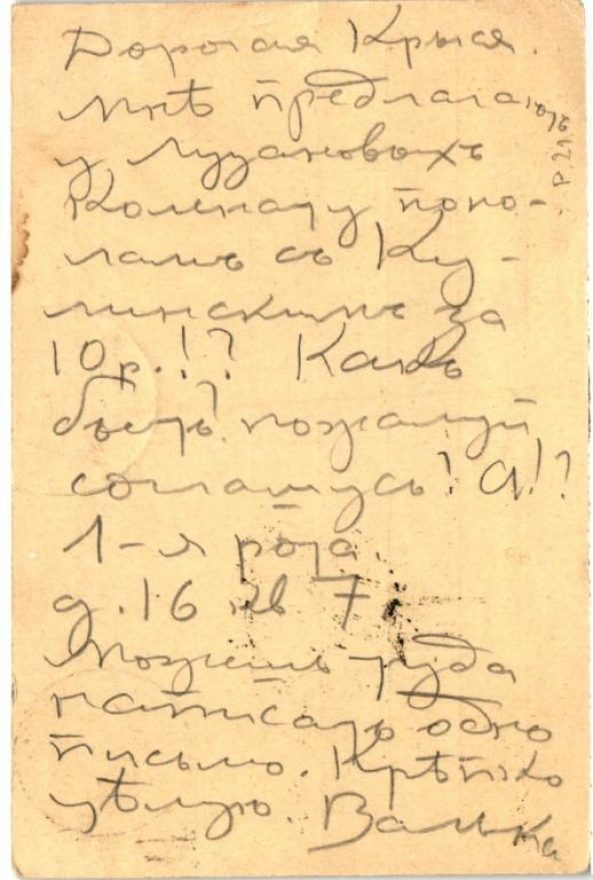 Дорогая Крыся.
Мнѣ предлагаютъ
у Лузановыхъ
Комнату попо-
ламъ съ Ку-
линскимъ за
10 р.!? Какъ
быть? пожалуй
соглашусь? А!?
1-я рота
д. 16 кв 7.
Можешь туда
написать одно
письмо. Крѣпко
цѣлую. Валька
Р.21б